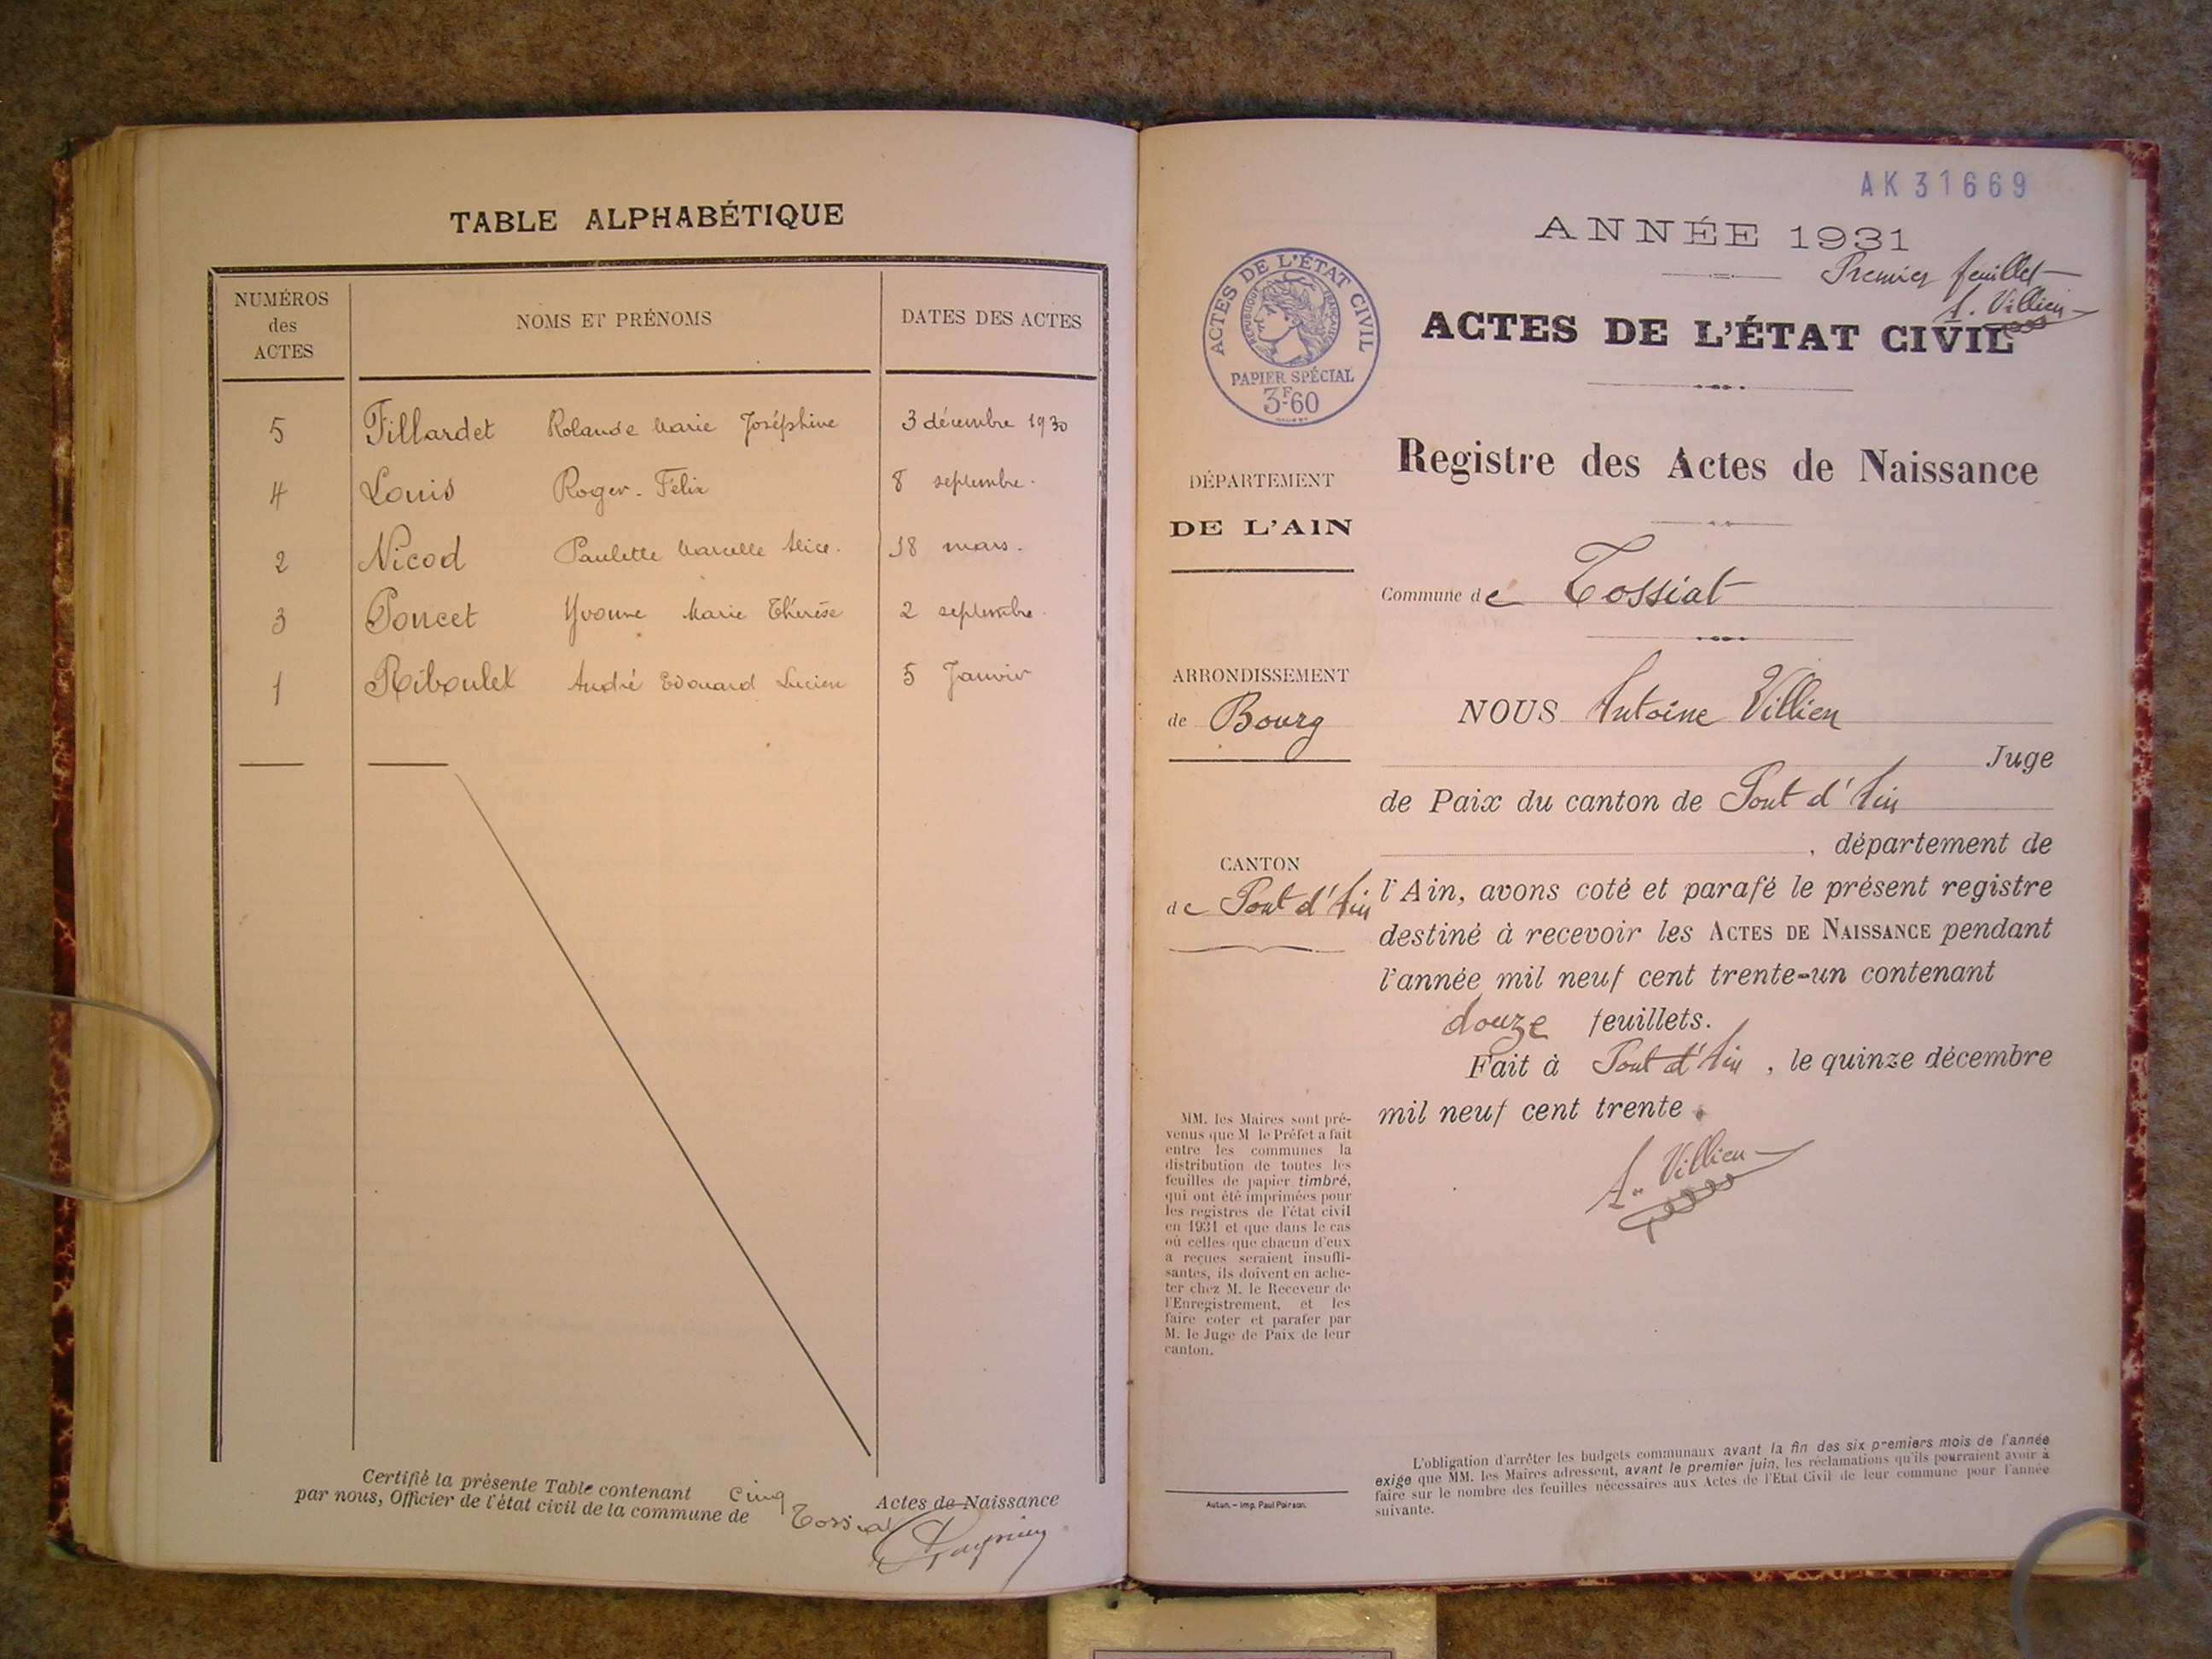 TABLE ALPHABÉTIQUE
NUMÉROS
des
ACTES
NOMS ET PRÉNOMS
DATES DES ACTES
5 Fillardet Rolande Marie Joséphine 3 décembre 1930
4 Louis Roger-Félix 8 septembre.
2 Nicod Paulette Marcelle Alice. 18 mars.
3 Poncet Yvonne Marie Thérèse 2 septembre.
1 Riboulet André Edouard Lucien 5 Janvier
Certifié la présente Table contenant cinq Actes de Naissance
par nous, Officier de l'état civil de la commune de Tossiat
AK31669
ANNÉE 1931
Premier feuillet
A. Villien
ACTES DE L'ÉTAT CIVIL
RÉPUBLIQUE FRANÇAISE
PAPIER SPÉCIAL
3F60
ACTES DE L'ÉTAT CIVIL
Registre des Actes de Naissance
DÉPARTEMENT
DE L'AIN
Commune de Tossiat
ARRONDISSEMENT
de Bourg
CANTON
de Pont d'Ain
NOUS Antoine Villien
Juge
de Paix du canton de Pont d'Ain
, département de
l'Ain, avons coté et parafé le présent registre
destiné à recevoir les ACTES DE NAISSANCE pendant
l'année mil neuf cent trente-un contenant
douze feuillets.
Fait à Pont d'Ain, le quinze décembre
mil neuf cent trente.
A. Villien
MM. les Maires sont pré-
venus que M le Préfet a fait
entre les communes la
distribution de toutes les
feuilles de papier timbré,
qui ont été imprimées pour
les registres de l'état civil
en 1931 et que dans le cas
où celles que chacun d'eux
a reçues seraient insuffi-
santes, ils doivent en ache-
ter chez M. le Receveur de
l'Enregistrement, et les
faire coter et parafer par
M. le Juge de Paix de leur
canton.
Autun. - Imp. Paul Poirson.
L'obligation d'arrêter les budgets communaux avant la fin des six premiers mois de l'année
exige que MM. les Maires adressent, avant le premier juin, les réclamations qu'ils pourraient avoir à
faire sur le nombre des feuilles nécessaires aux Actes de l'Etat Civil de leur commune pour l'année
suivante.